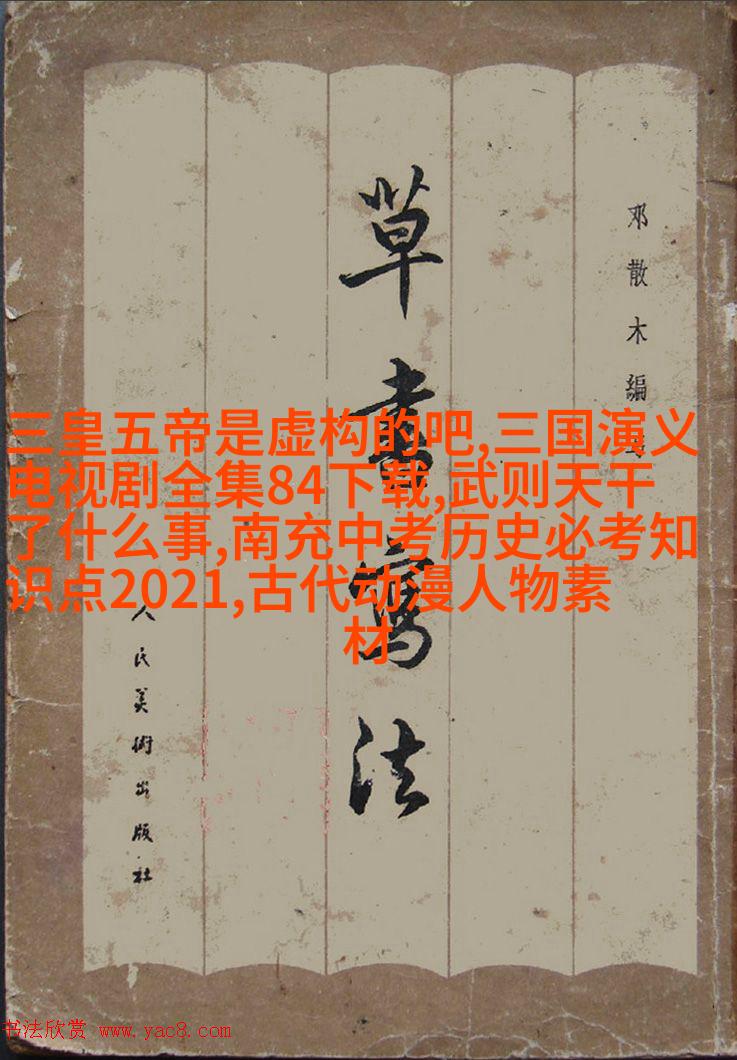 草書寫法
邓散木編
三皇五帝是虚构的吧,三国演义
电视剧全集84下载,武则天干
了什么事,南充中考历史必考知
识点2021,古代动漫人物素
材
人民美術出版社
书法欣赏 www.yac8.com